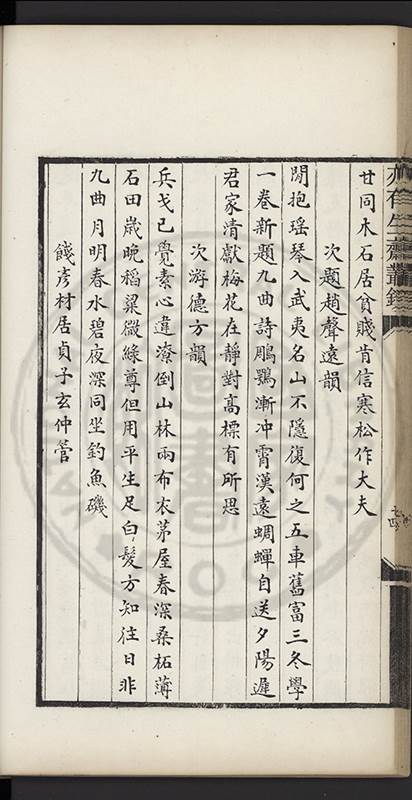 甘同木石居貧賤肯信寒松作大夫
次題趙聲遠韻
閒抱瑶琴入武夷名山不隱復何之五車舊富三冬學
一卷新題九曲詩鵰鶚漸冲霄漢遠蜩蟬自送夕陽遲
君家清獻梅花在靜對高標有所思
次游德方韻
兵戈已覺素心違潦倒山林兩布衣茅屋春深桑柘薄
石田歲晚稻粱微綠尊但用平生足白髮方知往日非
九曲月明春水碧夜深同坐釣魚磯
餞彥材居貞子玄仲管